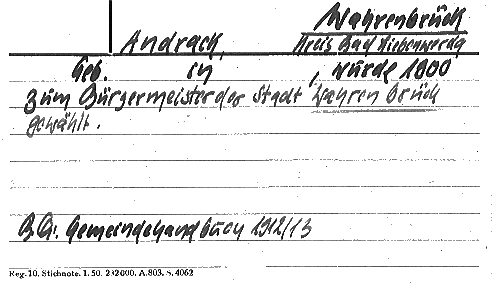 Wahrenbrück
Andrack, Kreis Bad Liebenwerda
Geb. in , wurde 1800
zum Bürgermeister der Stadt Wahrenbrück
gewählt.
B.Qu. Gemeindehandbuch 1912/13
Reg. 10. Stichnote. 1. 50. 232000. A.803. S. 4062